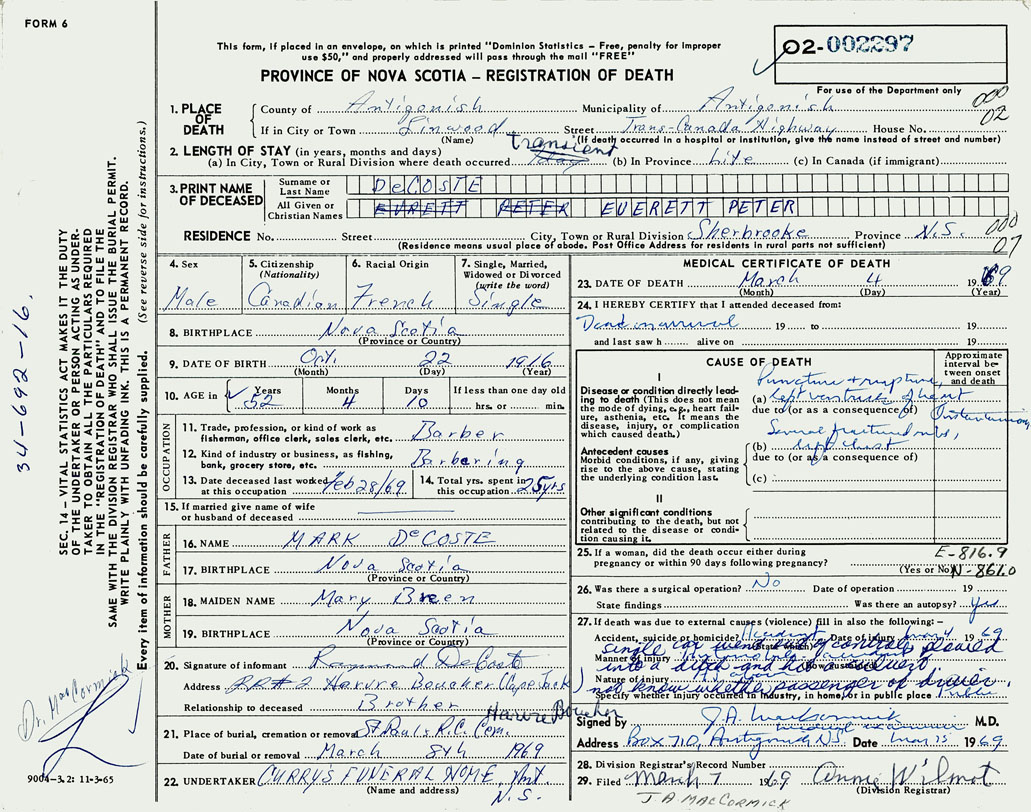 FORM 6
This form, if placed in an envelope, on which is printed "Dominion Statistics – Free, penalty for improper
use $50," and properly addressed will pass through the mail "FREE"
PROVINCE OF NOVA SCOTIA – REGISTRATION OF DEATH
02-002297
For use of the Department only
000
02
1. PLACE OF DEATH
County of Antigonish Municipality of Antigonish
If in City or Town Linwood Street Trans-Canada Highway House No.
(Name) (If death occurred in a hospital or institution, give the name instead of street and number)
2. LENGTH OF STAY (in years, months and days)
(a) In City, Town or Rural Division where death occurred transient (b) In Province Life (c) In Canada (if immigrant)
3. PRINT NAME OF DECEASED
Surname or Last Name DeCOSTE
All Given or Christian Names EVRETT PETER EVERETT PETER
RESIDENCE No. Street City, Town or Rural Division Sherbrooke Province N.S.
(Residence means usual place of abode. Post Office Address for residents in rural parts not sufficient)
000
07
4. Sex Male
5. Citizenship (Nationality) Canadian
6. Racial Origin French
7. Single, Married, Widowed or Divorced (write the word) Single
8. BIRTHPLACE Nova Scotia
(Province or Country)
9. DATE OF BIRTH Oct. 22 1916
(Month) (Day) (Year)
10. AGE in Years 52 Months 4 Days 10 If less than one day old hrs. or min.
OCCUPATION
11. Trade, profession, or kind of work as fisherman, office clerk, sales clerk, etc. Barber
12. Kind of industry or business, as fishing, bank, grocery store, etc. Barbering
13. Date deceased last worked at this occupation Feb 28/69 14. Total yrs. spent in this occupation 25 yrs
15. If married give name of wife or husband of deceased
FATHER
16. NAME MARK DeCOSTE
17. BIRTHPLACE Nova Scotia
(Province or Country)
MOTHER
18. MAIDEN NAME Mary Breen
19. BIRTHPLACE Nova Scotia
(Province or Country)
20. Signature of informant Raymond DeCoste
Address RR#2 Havre Boucher (Cape Jack)
Relationship to deceased Brother
Havre Boucher
21. Place of burial, cremation or removal St Paul's R.C. Cem.
Date of burial or removal March 8th 1969
22. UNDERTAKER CURRY'S FUNERAL HOME, Ant.
(Name and address) N.S.
MEDICAL CERTIFICATE OF DEATH
23. DATE OF DEATH March 4 1969
(Month) (Day) (Year)
24. I HEREBY CERTIFY that I attended deceased from:
Dead on arrival 19 to 19
and last saw h alive on 19
CAUSE OF DEATH
Approximate interval between onset and death
I
Disease or condition directly leading to death (This does not mean the mode of dying, e.g., heart failure, asthenia, etc. It means the disease, injury, or complication which caused death.)
Puncture & rupture,
(a) left ventricle of heart
due to (or as a consequence of)
Several fractured ribs,
(b) left chest
due to (or as a consequence of)
Antecedent causes
Morbid conditions, if any, giving rise to the above cause, stating the underlying condition last.
(c)
II
Other significant conditions contributing to the death, but not related to the disease or condition causing it.
25. If a woman, did the death occur either during pregnancy or within 90 days following pregnancy?
(Yes or No)
E-816.9
N-861.0
26. Was there a surgical operation? No Date of operation 19
State findings Was there an autopsy? Yes
27. If death was due to external causes (violence) fill in also the following:–
Accident, suicide or homicide? Accident Date of injury 4 1969
Manner of injury
single car went out of control
into a ditch and
Nature of injury
not know whether passenger or driver.
Specify whether injury occurred in industry, in home, or in public place Public
Signed by J.A. MacCormick M.D.
medical examiner
Address Box 710, Antigonish N.S. Date Mar 15 1969
28. Division Registrar's Record Number
29. Filed March 7 1969 Annie Wilmot
(Division Registrar)
J A MACCORMICK
SEC. 14 – VITAL STATISTICS ACT MAKES IT THE DUTY
OF THE UNDERTAKER OR PERSON ACTING AS UNDER-
TAKER TO OBTAIN ALL THE PARTICULARS REQUIRED
IN THE "REGISTRATION OF DEATH" AND TO FILE THE
SAME WITH THE DIVISION REGISTRAR WHO SHALL ISSUE THE BURIAL PERMIT.
WRITE PLAINLY WITH UNFADING INK. THIS IS A PERMANENT RECORD.
Every item of information should be carefully supplied. (See reverse side for instructions.)
34-692-16.
Dr. MacCormick
9004-3.2: 11-3-65